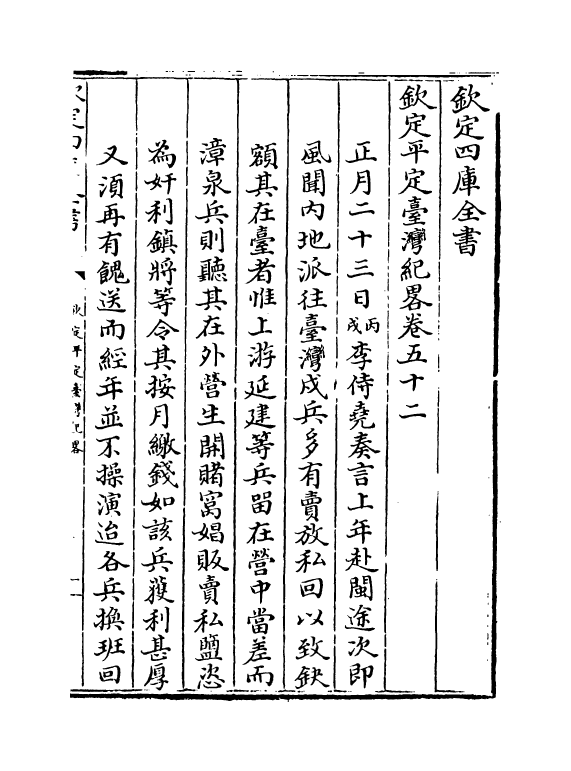 欽定四庫全書
欽定平定臺灣紀畧卷五十二
正月二十三日丙戌李侍堯奏言上年赴閩途次即
風聞内地派往臺灣戍兵多有賣放私回以致缺
額其在臺者惟上游延建等兵留在營中當差而
漳泉兵則聽其在外營生開賭窩娼販賣私鹽恣
為奸利鎮將等令其按月繳錢如該兵獲利甚厚
又須再有餽送而經年並不操演迨各兵換班回
欽定四庫全書
欽定平定臺灣紀畧
一